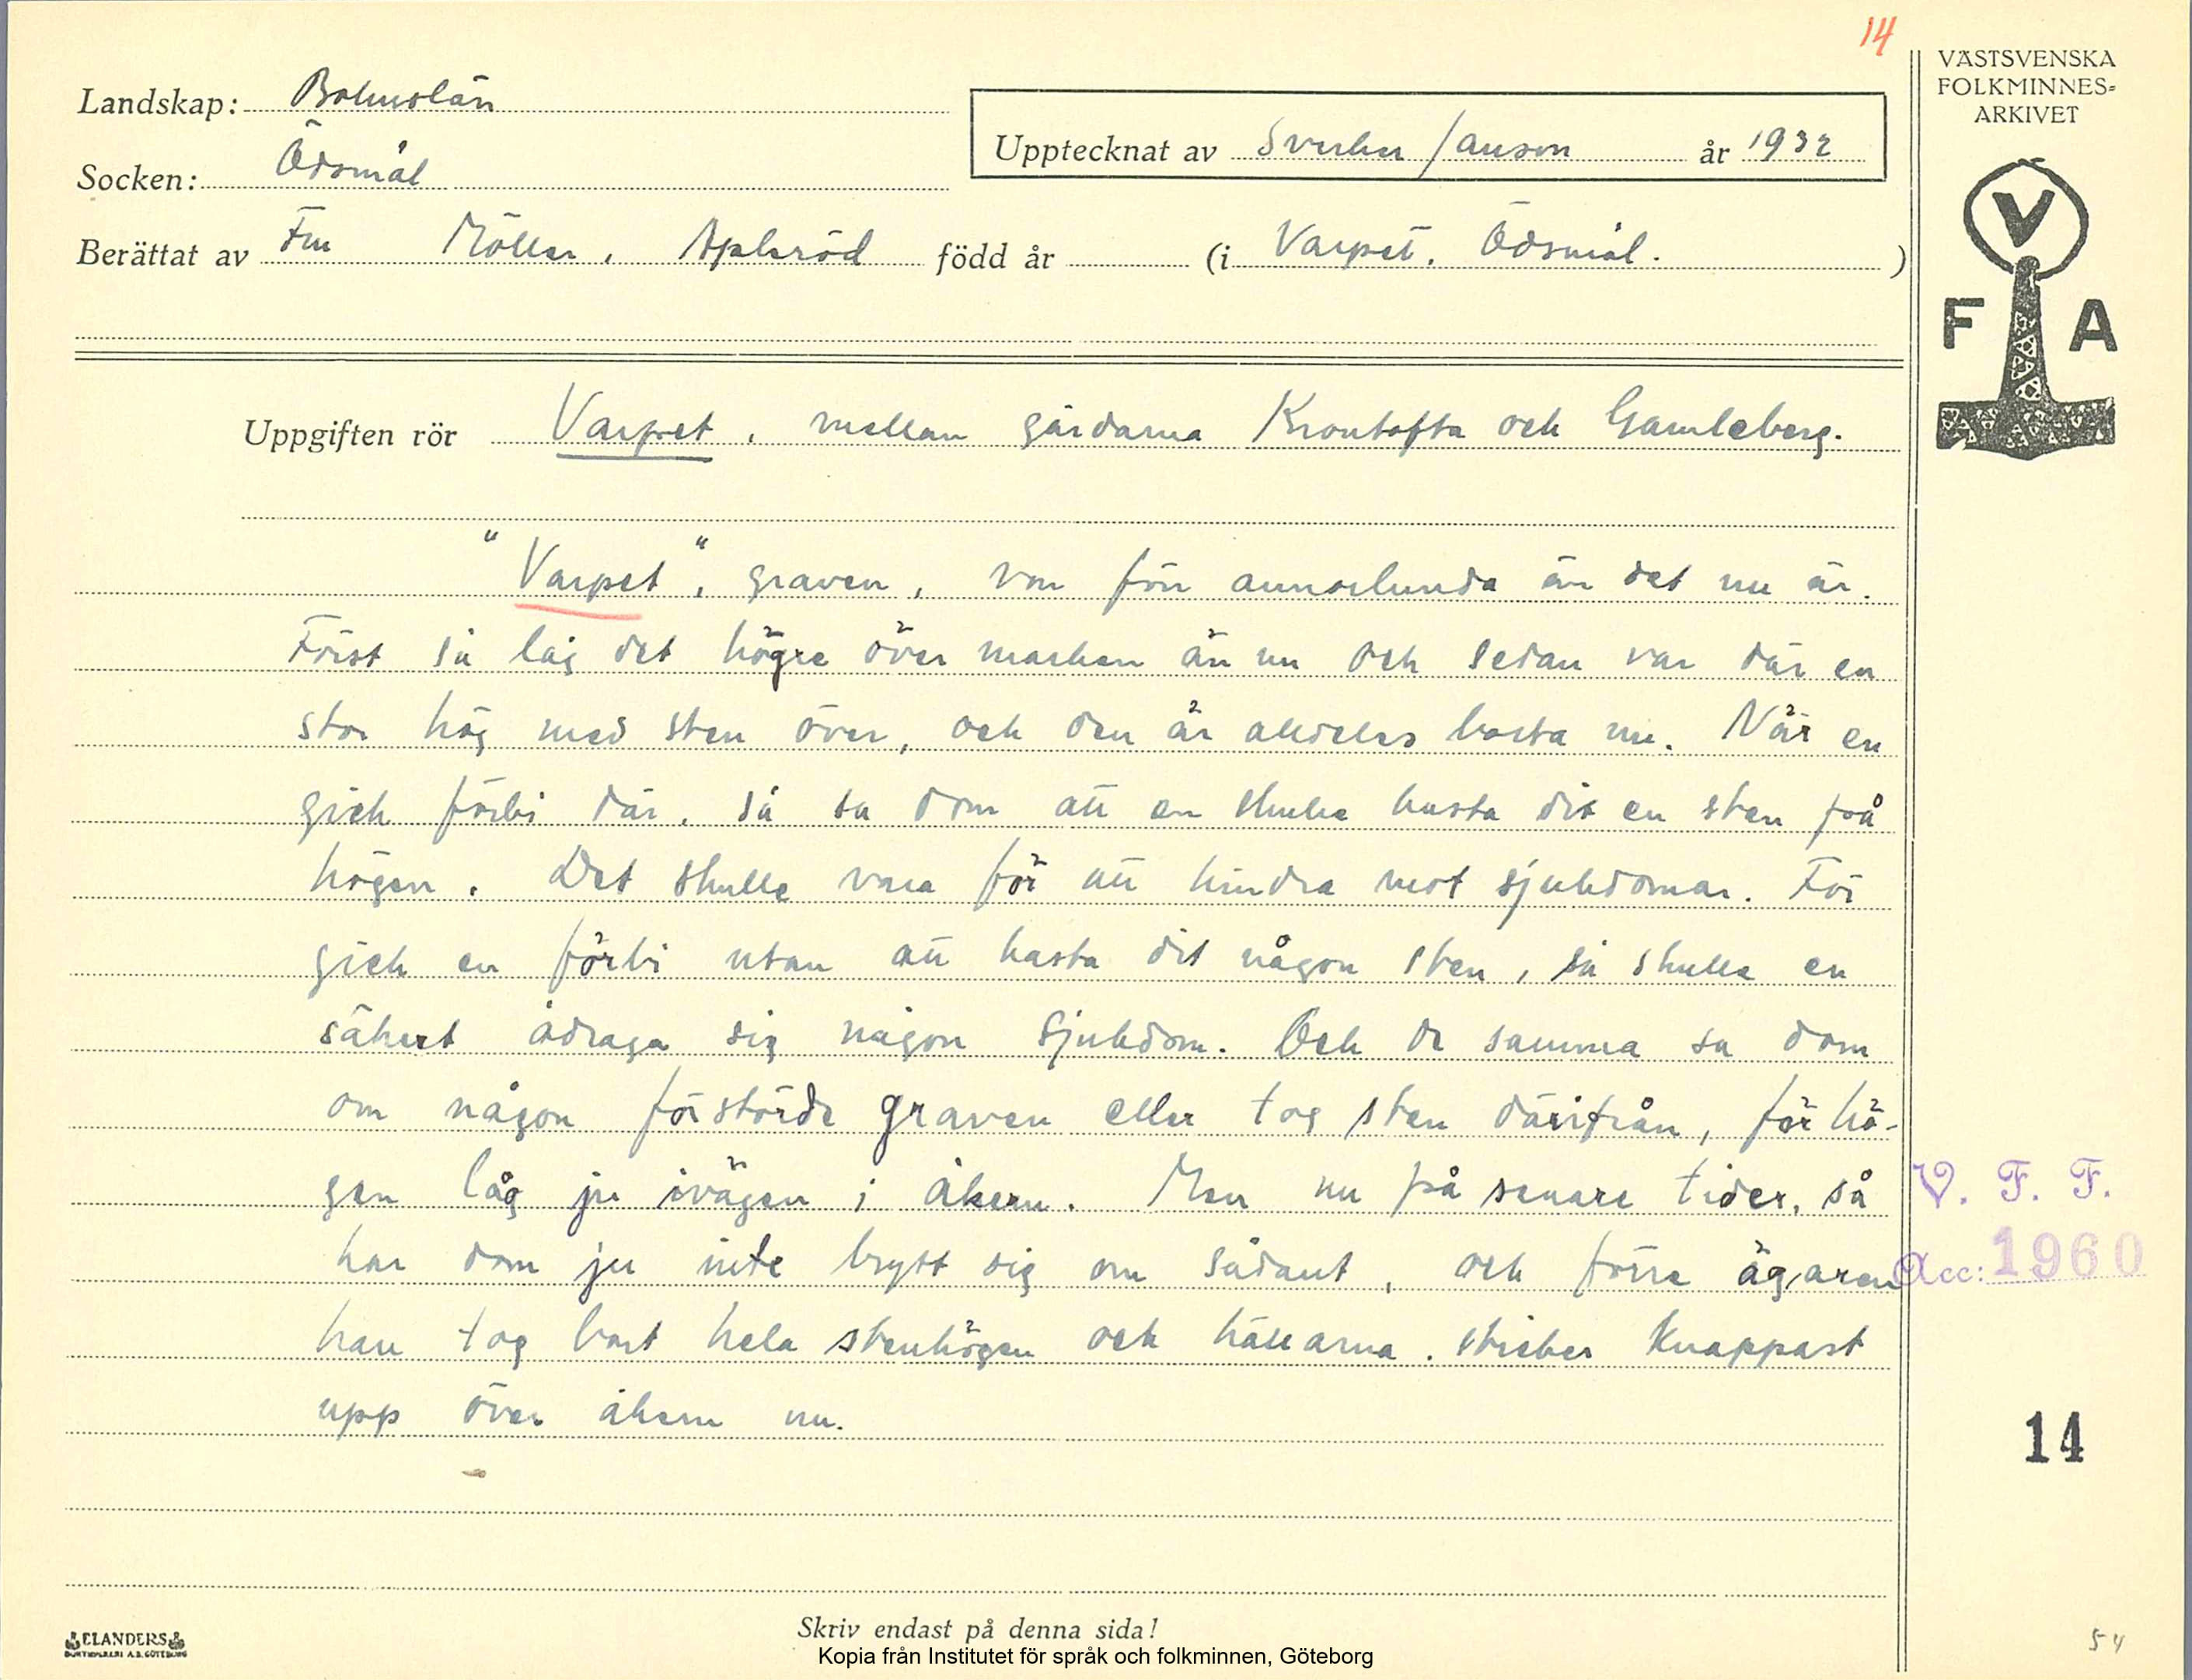 14
VÄSTSVENSKA
FOLKMINNES-
ARKIVET
Landskap: Bohuslän
Upptecknat av Sverker Janson år 1932
Socken: Ödsmål
Berättat av Fru Möller, Apleröd född år (i Varpet. Ödsmål. )
V
F A
Uppgiften rör Varpet, mellan gårdarna Krontofta och Gamleberg.
"Varpet", graven, var förr annorlunda än det nu är.
Först så låg det högre över marken än nu och sedan var där en
stor hög med sten över, och den är alldeles borta nu. När en
gick förbi där, så sa dom att en skulle kasta dit en sten på
högen. Det skulle vara för att hindra mot sjukdomar. För
gick en förbi utan att kasta dit någon sten, så skulle en
säkert ådraga sig någon sjukdom. Och de samma sa dom
om någon förstörde graven eller tog sten därifrån, för hö-
gen låg ju ivägen i åkern. Men nu på senare tider, så
har dom ju inte brytt sig om sådant, och förre ägaren
han tog bort hela stenhögen och hällarna. sticker knappast
upp över åkern nu.
V. F. F.
Acc: 1960
14
ELANDERS
BOKTRYCKERI A.B. GÖTEBORG
Skriv endast på denna sida!
Kopia från Institutet för språk och folkminnen, Göteborg
54